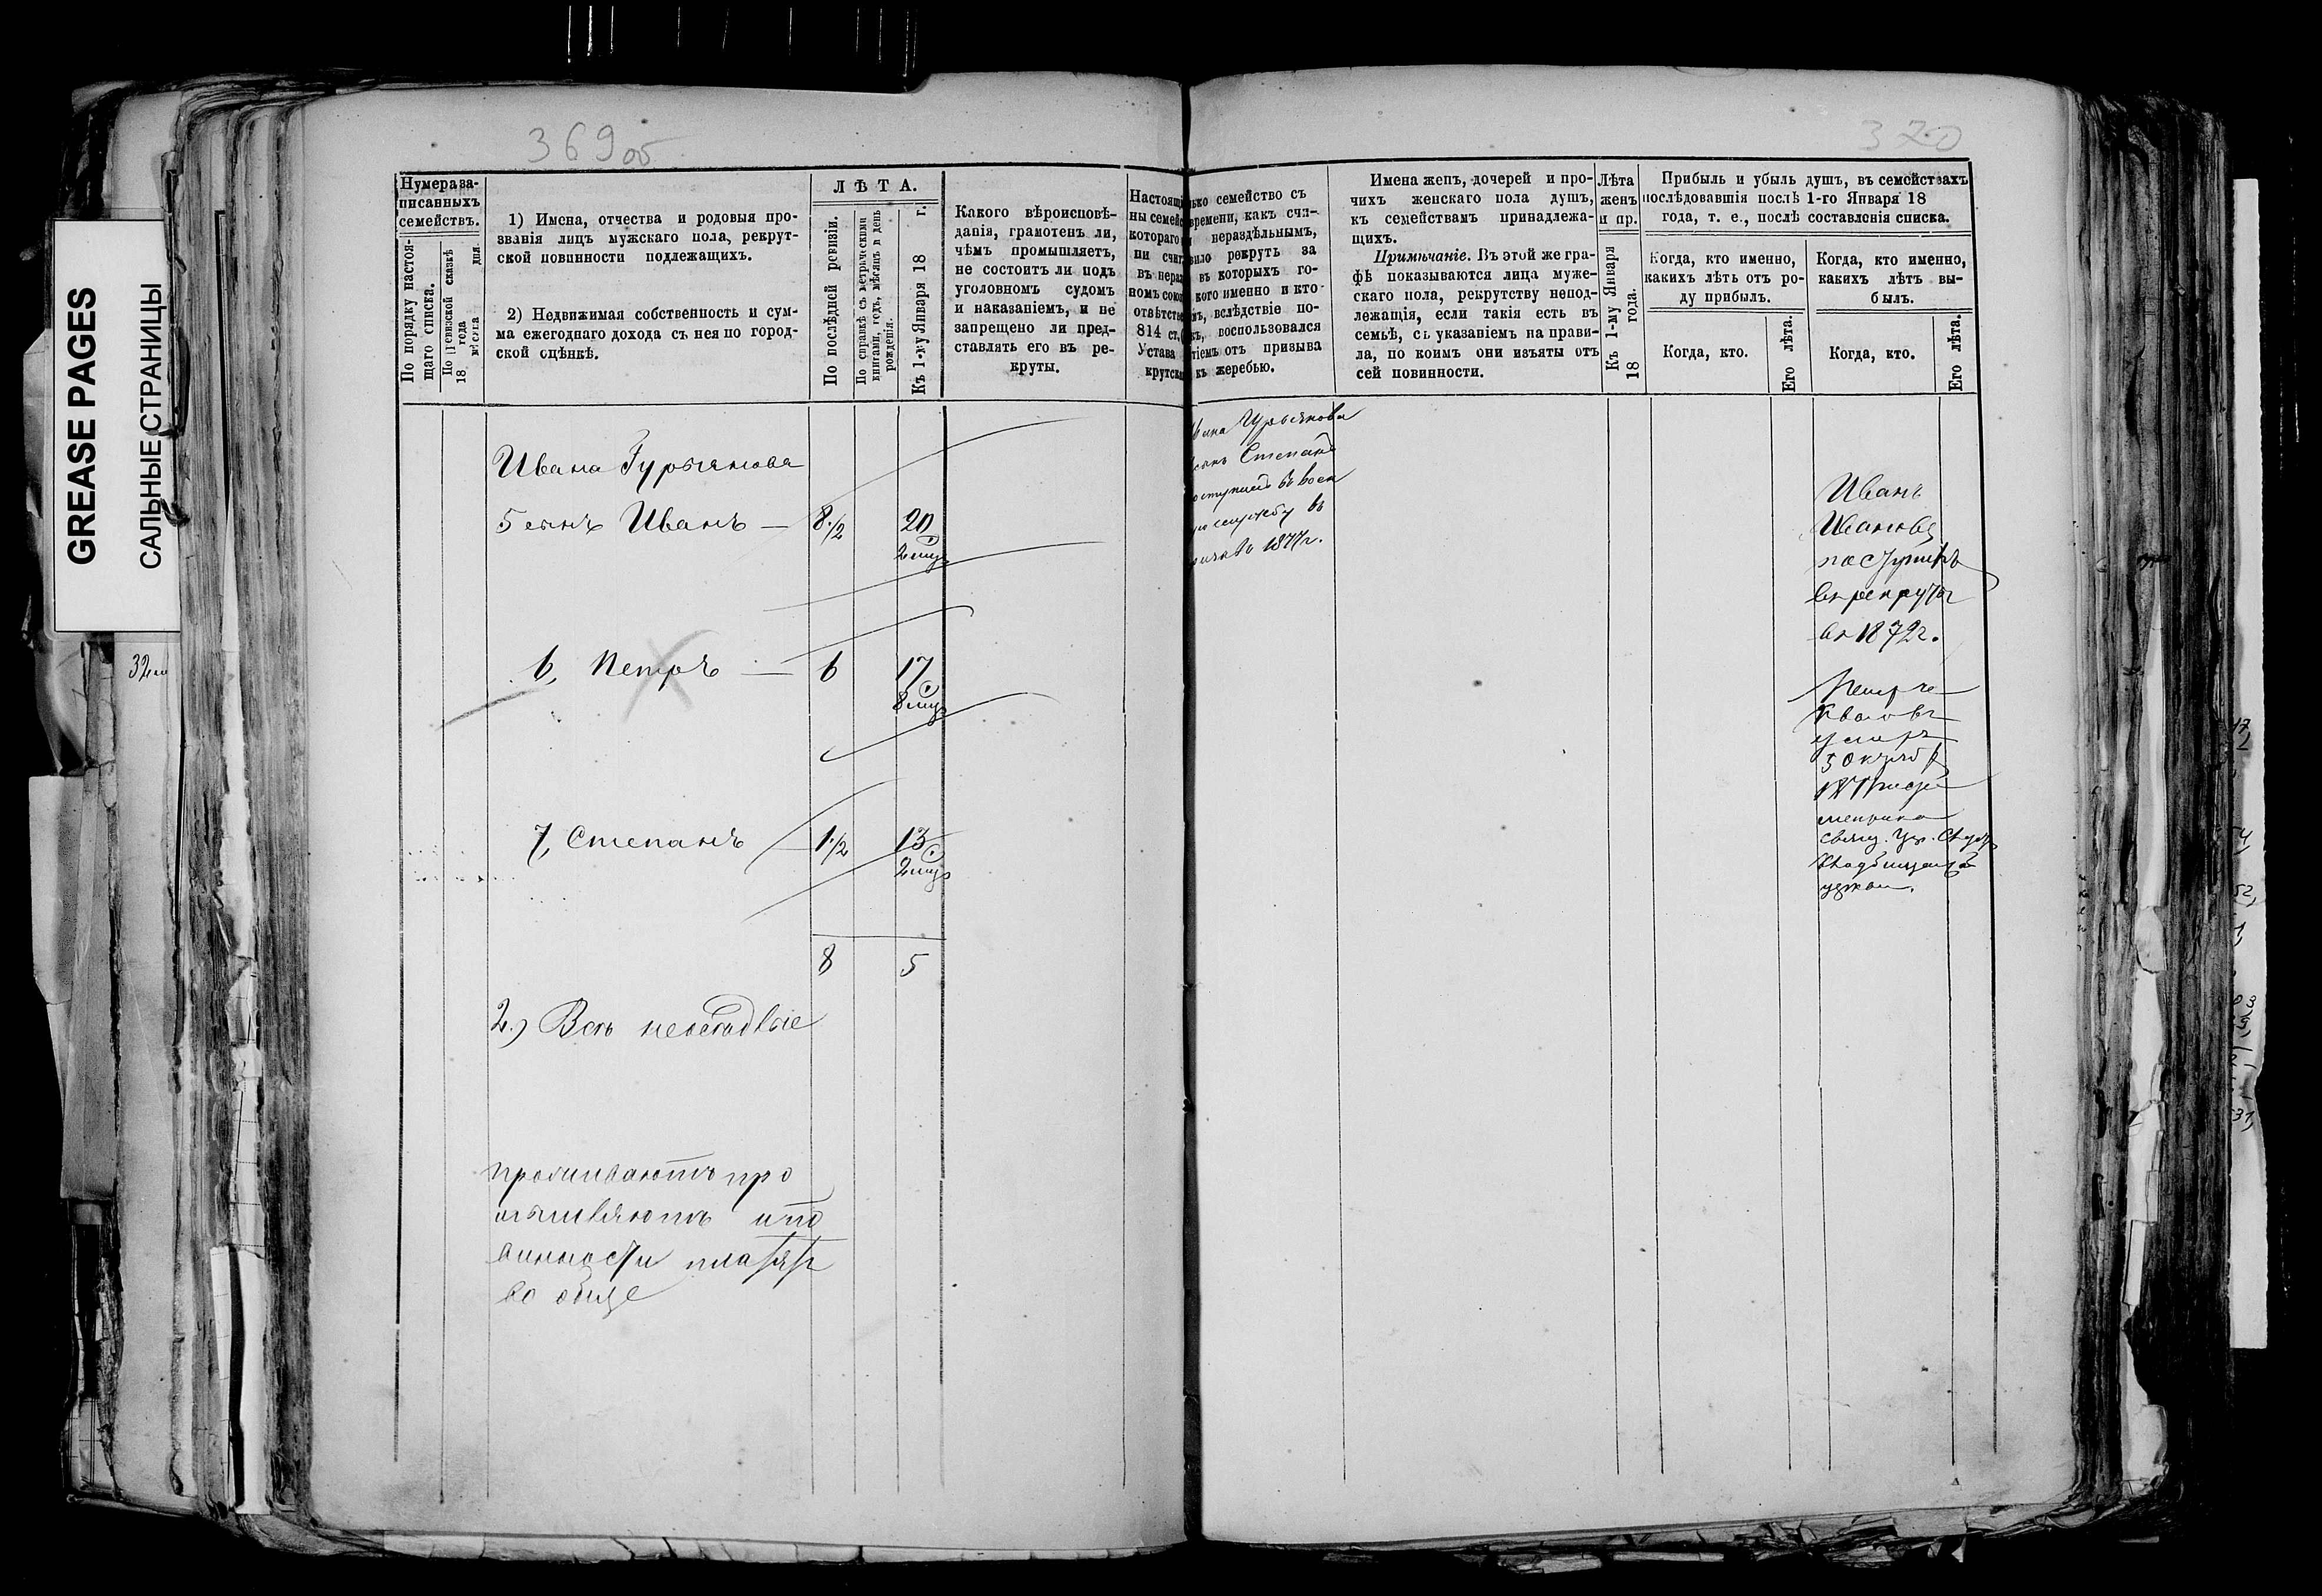 GREASE PAGES
САЛЬНЫЕ СТРАНИЦЫ
369 об
370
Нумера за-
писанныхъ
семействъ.
По порядку настоя-
щаго списка.
По ревизской сказкѣ
18 года
мѣсяца дня.
1) Имена, отчества и родовыя про-
званія лицъ мужскаго пола, рекрут-
ской повинности подлежащихъ.
2) Недвижимая собственность и сум-
ма ежегоднаго дохода съ нея по город-
ской оцѣнкѣ.
ЛѢТА.
По послѣдней ревизіи.
По справкѣ съ метрическими
книгами, годъ, мѣсяцъ и день
рожденія.
Къ 1-му Января 18 г.
Какого вѣроисповѣ-
данія, грамотенъ ли,
чѣмъ промышляетъ,
не состоитъ ли подъ
уголовномъ судомъ
и наказаніемъ, и не
запрещено ли пред-
ставлять его въ ре-
круты.
Настоящ
ны семейс
котораго
ни счит
въ нераз
номъ союз
отвѣтстве
814 ст.
Устава
крутск
ько семейство съ
времени, какъ счи-
нераздѣльнымъ,
вило рекрутъ за
въ которыхъ го-
кого именно и кто
мъ, вслѣдствіе по-
къ, воспользовался
тіемъ отъ призыва
къ жеребью.
Имена женъ, дочерей и про-
чихъ женскаго пола душъ,
къ семействамъ принадлежа-
щихъ.
Примѣчаніе. Въ этой же гра-
фѣ показываются лица муже-
скаго пола, рекрутству непод-
лежащія, если такія есть въ
семьѣ, съ указаніемъ на прави-
ла, по коимъ они изъяты отъ
сей повинности.
Лѣта
женъ
и пр.
Къ 1-му Января
18 года.
Прибыль и убыль душъ, въ семействахъ
послѣдовавшія послѣ 1-го Января 18
года, т. е., послѣ составленія списка.
Когда, кто именно,
какихъ лѣтъ отъ ро-
ду прибылъ.
Когда, кто именно,
какихъ лѣтъ вы-
былъ.
Когда, кто.
Его лѣта.
Когда, кто.
Его лѣта.
Ивана Гурьянова
5 сынъ Иванъ — 8 1/2 20
2 мц
6, Петръ — 6 17
8 мц
7, Степанъ 1 1/2 13
2 мц
8 5
2.) Всѣ неоседлые
проживаютъ про
мышляютъ и по
винности платятъ
во обще
Гурьянова
сынъ Степанъ
поступилъ въ воен
службу въ
1877 г.
Иванъ
Ивановъ
поступилъ
въ рекруты
въ 1872 г.
Петръ
Ивановъ
умеръ
5 Октяб
церкви.
32